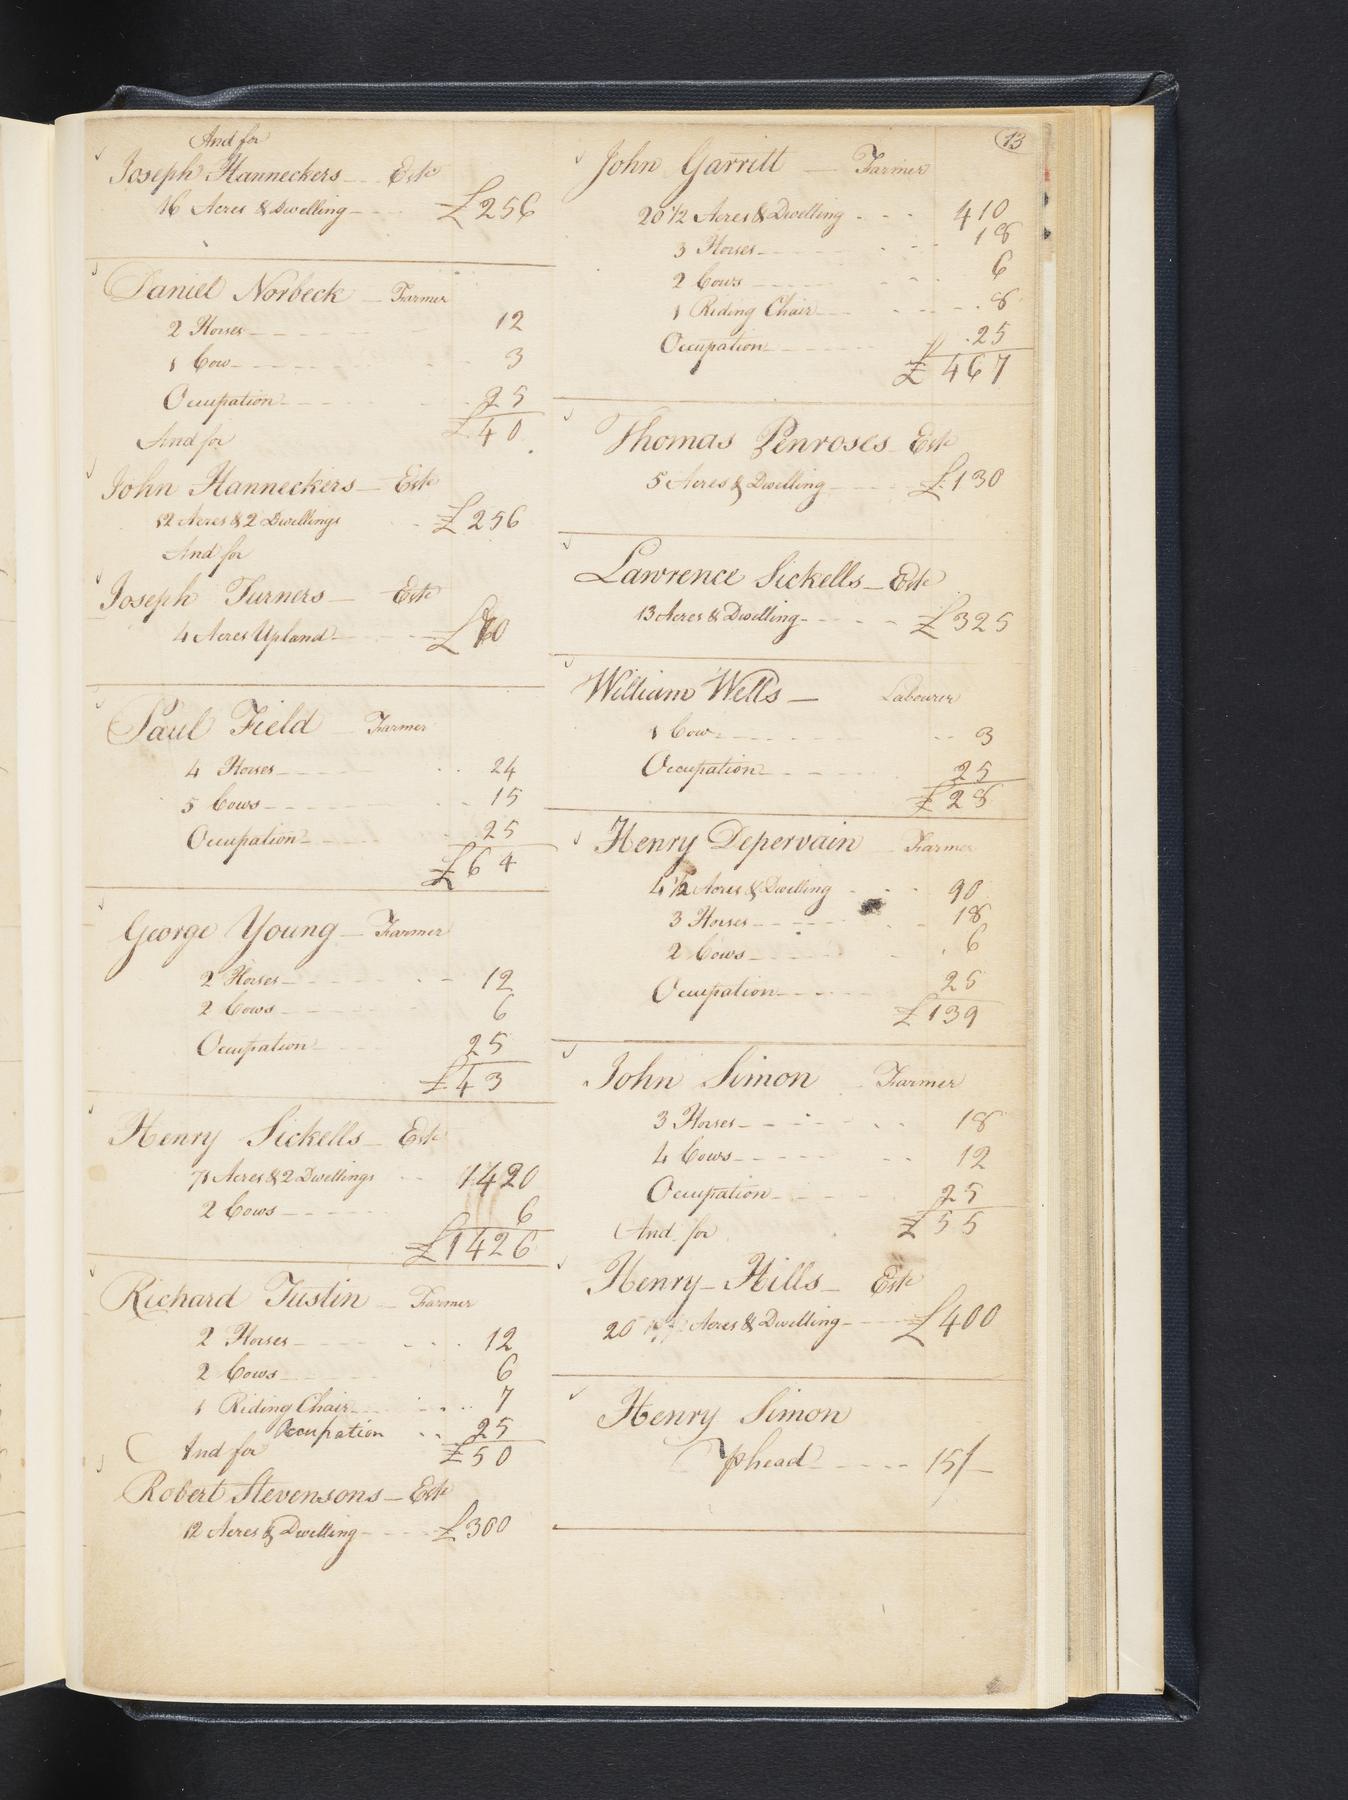 And for
Joseph Hanneckers Este
16 Acres & Dwelling £256
Daniel Norbeck Farmer
2 Horses 12
1 Cow 3
Occupation 25
£40
And for
John Hanneckers Este
12 Acres & 2 Dwellings £256
And for
Joseph Turners Este
4 Acres Upland
Paul Field Farmer
4 Horses 24
5 Cows 15
Occupation 25
£64
George Young Farmer
2 Horses 12
2 Cows 6
Occupation 25
£43
Henry Sickells Este
71 Acres & 2 Dwellings 1420
2 Cows 6
£1426
Richard Tustin Farmer
2 Horses 12
2 Cows 6
1 Riding Chair 7
Occupation 25
And for £50
Robert Stevensons Este
12 Acres & Dwelling £300
13
John Garrett Farmer
20 1/2 Acres & Dwelling 410
3 Horses 18
2 Cows 6
1 Riding Chair 8
Occupation 25
£467
Thomas Penroses Este
5 Acres & Dwelling £130
Lawrence Sickells Este
13 Acres & Dwelling £325
William Wells Labourer
1 Cow 3
Occupation 25
£28
Henry Depervain Farmer
4 1/2 Acres & Dwelling 90
3 Horses 18
2 Cows 6
Occupation 25
£139
John Simon Farmer
3 Horses 18
4 Cows 12
Occupation 25
£55
And for
Henry Hills Este
20 Acres & Dwelling £400
Henry Simon
P head 15/